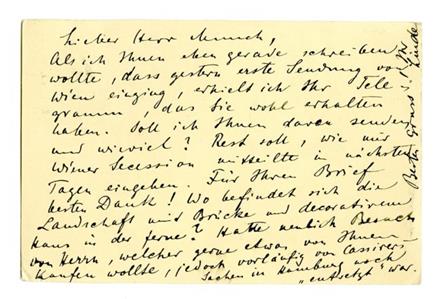 Lieber Herr Munch,
Als ich Ihnen eben gerade schreiben
wollte, dass gestern erste Sendung von
Wien einging, erhielt ich Ihr Tele
gramm, das Sie wohl erhalten
haben. Soll ich Ihnen davon senden
und wieviel? Rest soll, wie mir
Wiener Secession mitteilte in nächsten
Tagen eingehen. Für Ihren Brief
besten Dank! Wo befindet sich die
Landschaft mit Brücke und decorativem
Haus in der Ferne? Hatte neulich Besuch
von Herrn, welcher gerne etwas von Ihnen
kaufen wollte, jedoch vorläufig von Cassirers
Sachen in Hamburg noch
"entsetzt" war.
Beste Grüsse s. Ihr
Linde